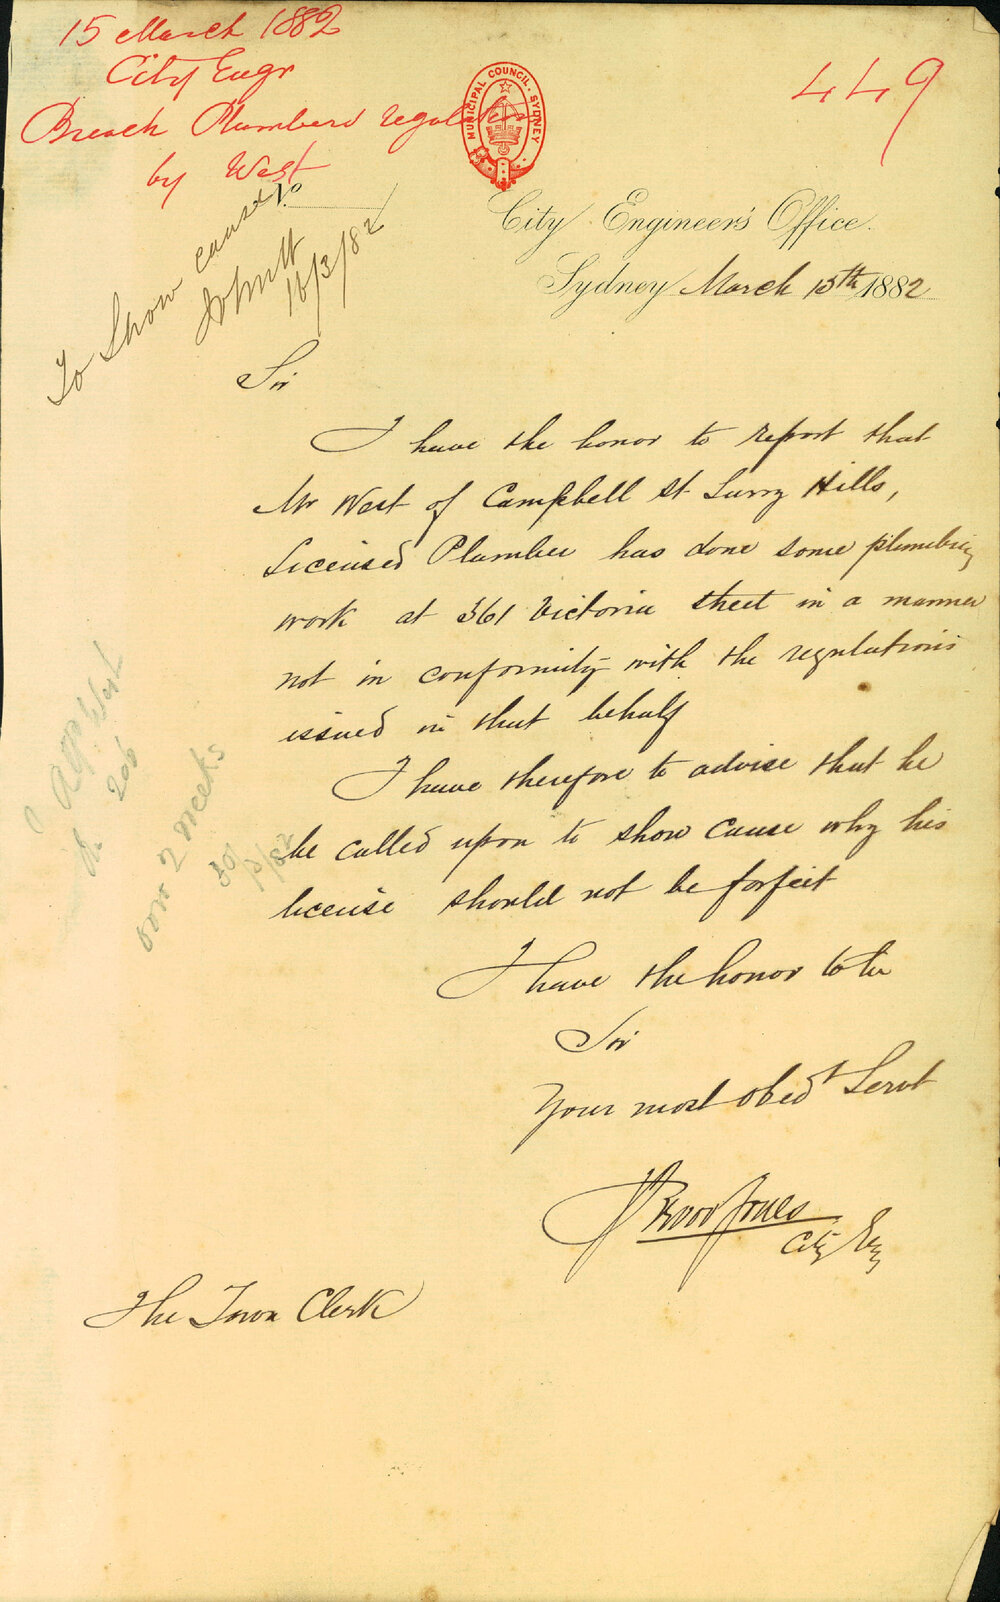 15 March 1882
City Engr
Breach Plumbers regulations
by West
449
MUNICIPAL COUNCIL. SYDNEY
No
City Engineer's Office.
Sydney March 15th 1882
To Show cause
16/3/82
Sir
I have the honor to report that
Mr West of Campbell St Surry Hills,
Licensed Plumber has done some plumbing
work at 361 Victoria street in a manner
not in conformity with the regulations
issued in that behalf
I have therefore to advise that he
be called upon to show cause why his
license should not be forfeit
I have the honor to be
Sir
Your most obedt Servt
City Eng
The Town Clerk
2 weeks